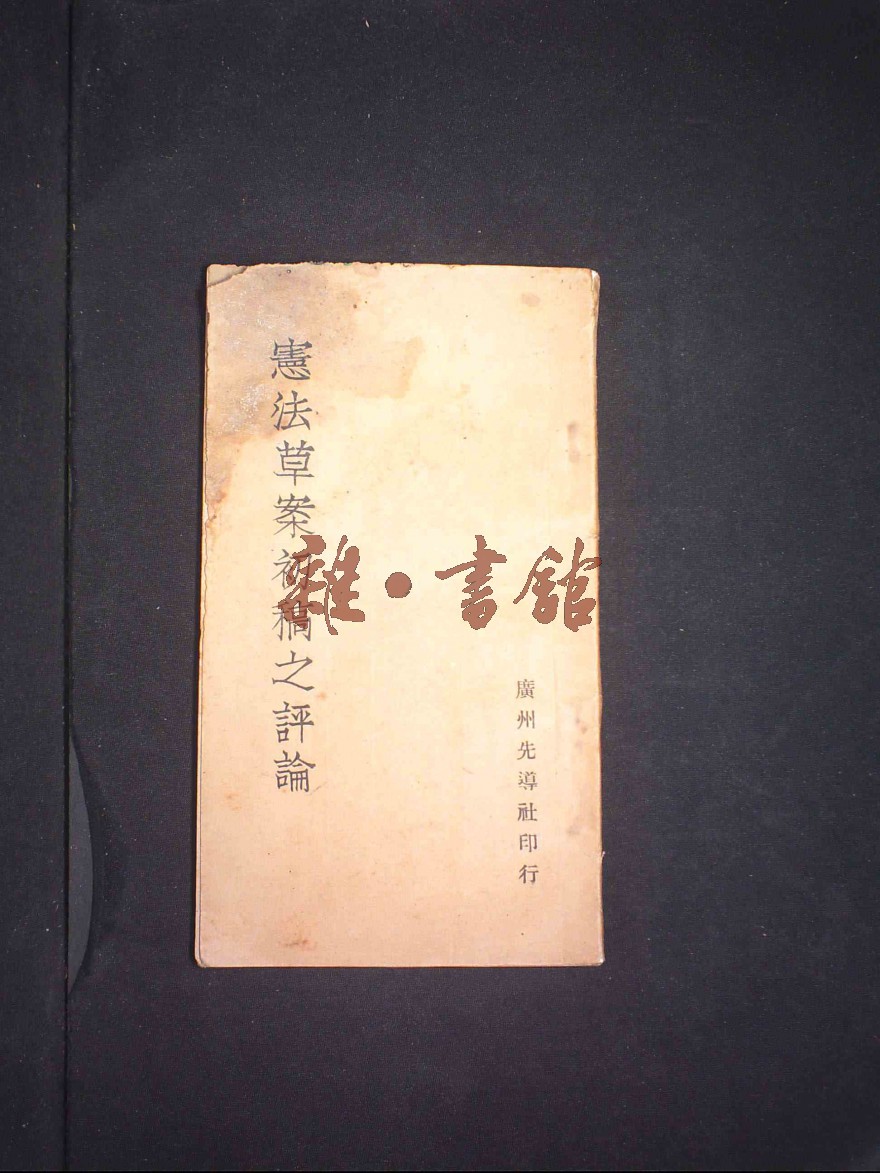 憲法草案初稿之評論
雜·書館
廣州先導社印行